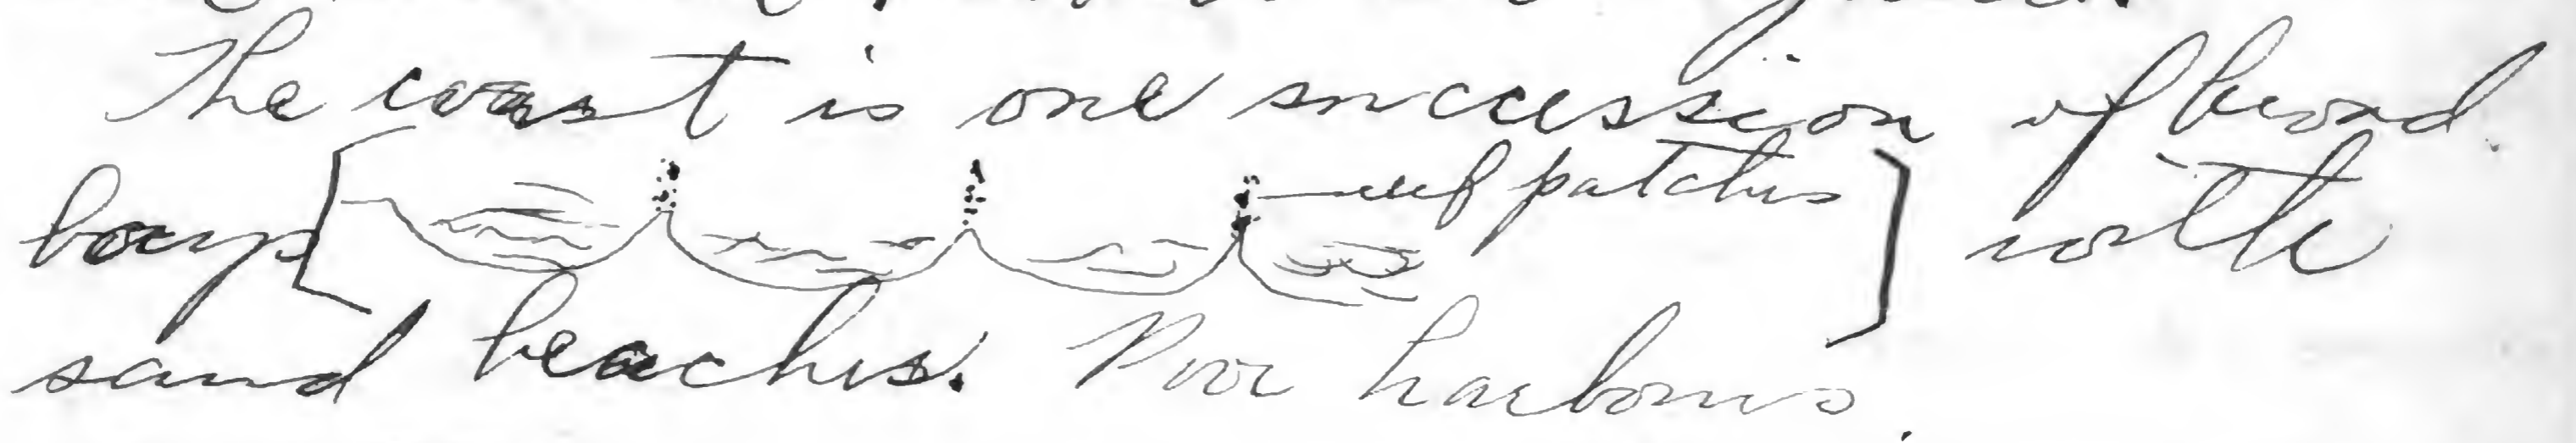 The coast is one succession of broad
bays [ reef patches ] with
sand beaches. Poor harbours.